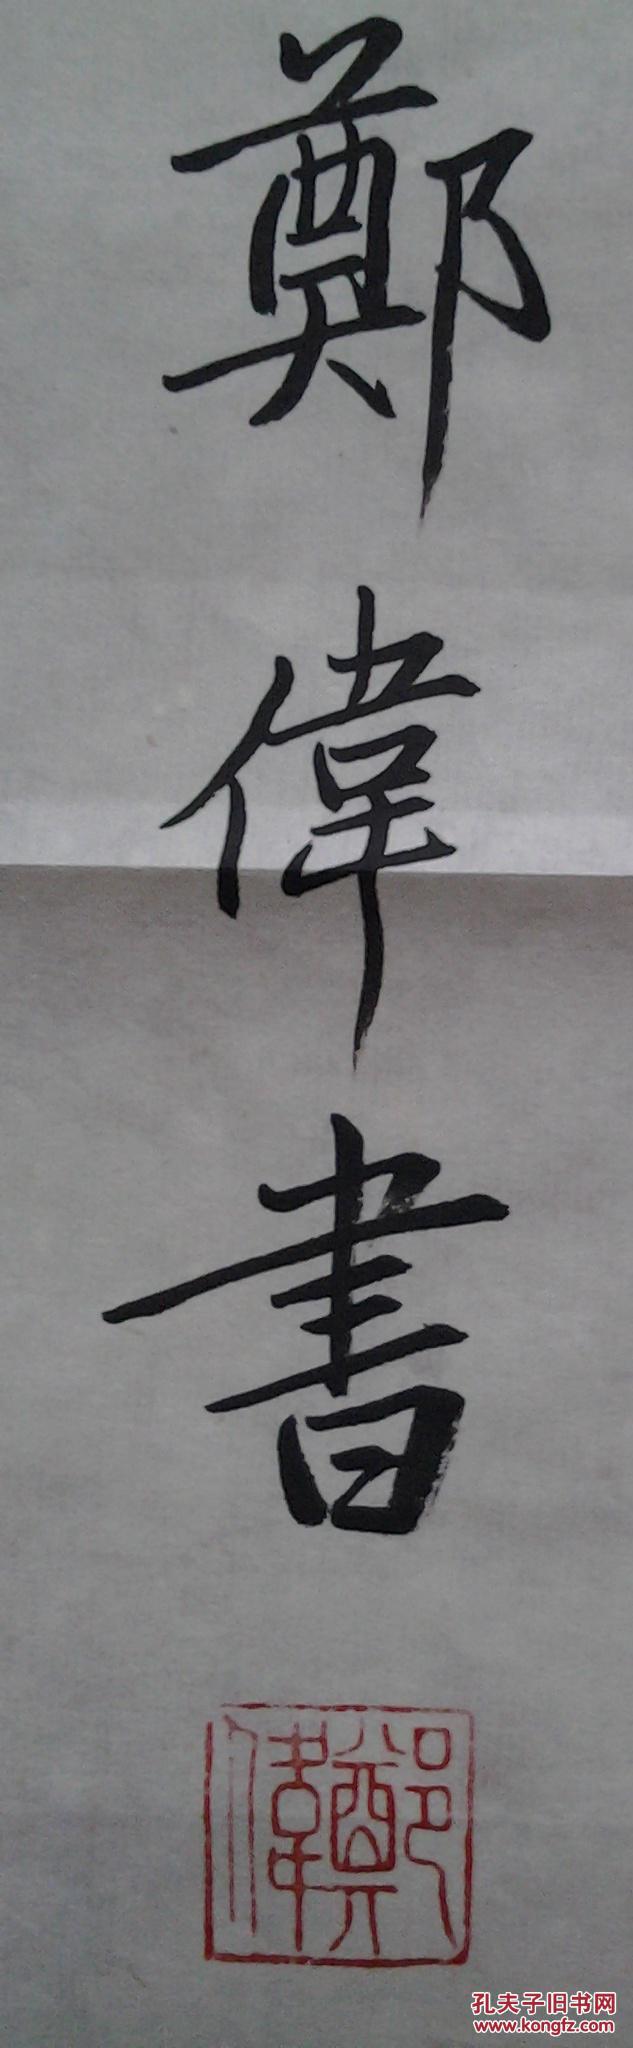 鄭偉書
鄭偉
孔夫子旧书网
www.kongfz.com